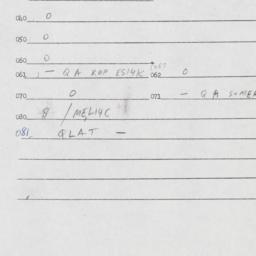 040 0
050 0
060 0
061 - QA KUP ESI4K 062 0
070 0 071 - QA SUMER
080 8 /MELI4C
081 QLAT -